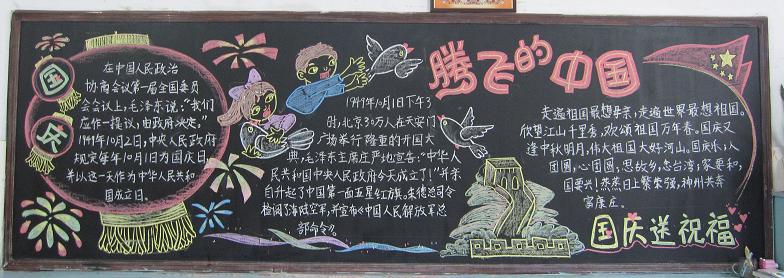 国
庆
在中国人民政治
协商会议第一届全国委员
会会议上，毛泽东说："我们
应作一提议，由政府决定。"
1949年10月2日，中央人民政府
规定每年10月1日为国庆日，
并以这一天作为中华人民共和
国成立日。
1949年10月1日下午3
时，北京30万人在天安门
广场举行隆重的开国大
典，毛泽东主席庄严地宣告："中华人
民共和国中央人民政府今天成立了！"并亲
自升起了中国第一面五星红旗。朱德总司令
检阅了海陆空军，并宣布《中国人民解放军总
部命令》。
腾飞的
中国
走遍祖国最想母亲，走遍世界最想祖国。
欣望江山千里秀，欢颂祖国万年春。国庆又
逢中秋明月，伟大祖国大好河山。国庆乐；人
团圆，心团圆；思故乡，念台湾；家要和，
国要兴！蒸蒸日上繁荣强，神州共奔
富康庄。
国庆送祝福